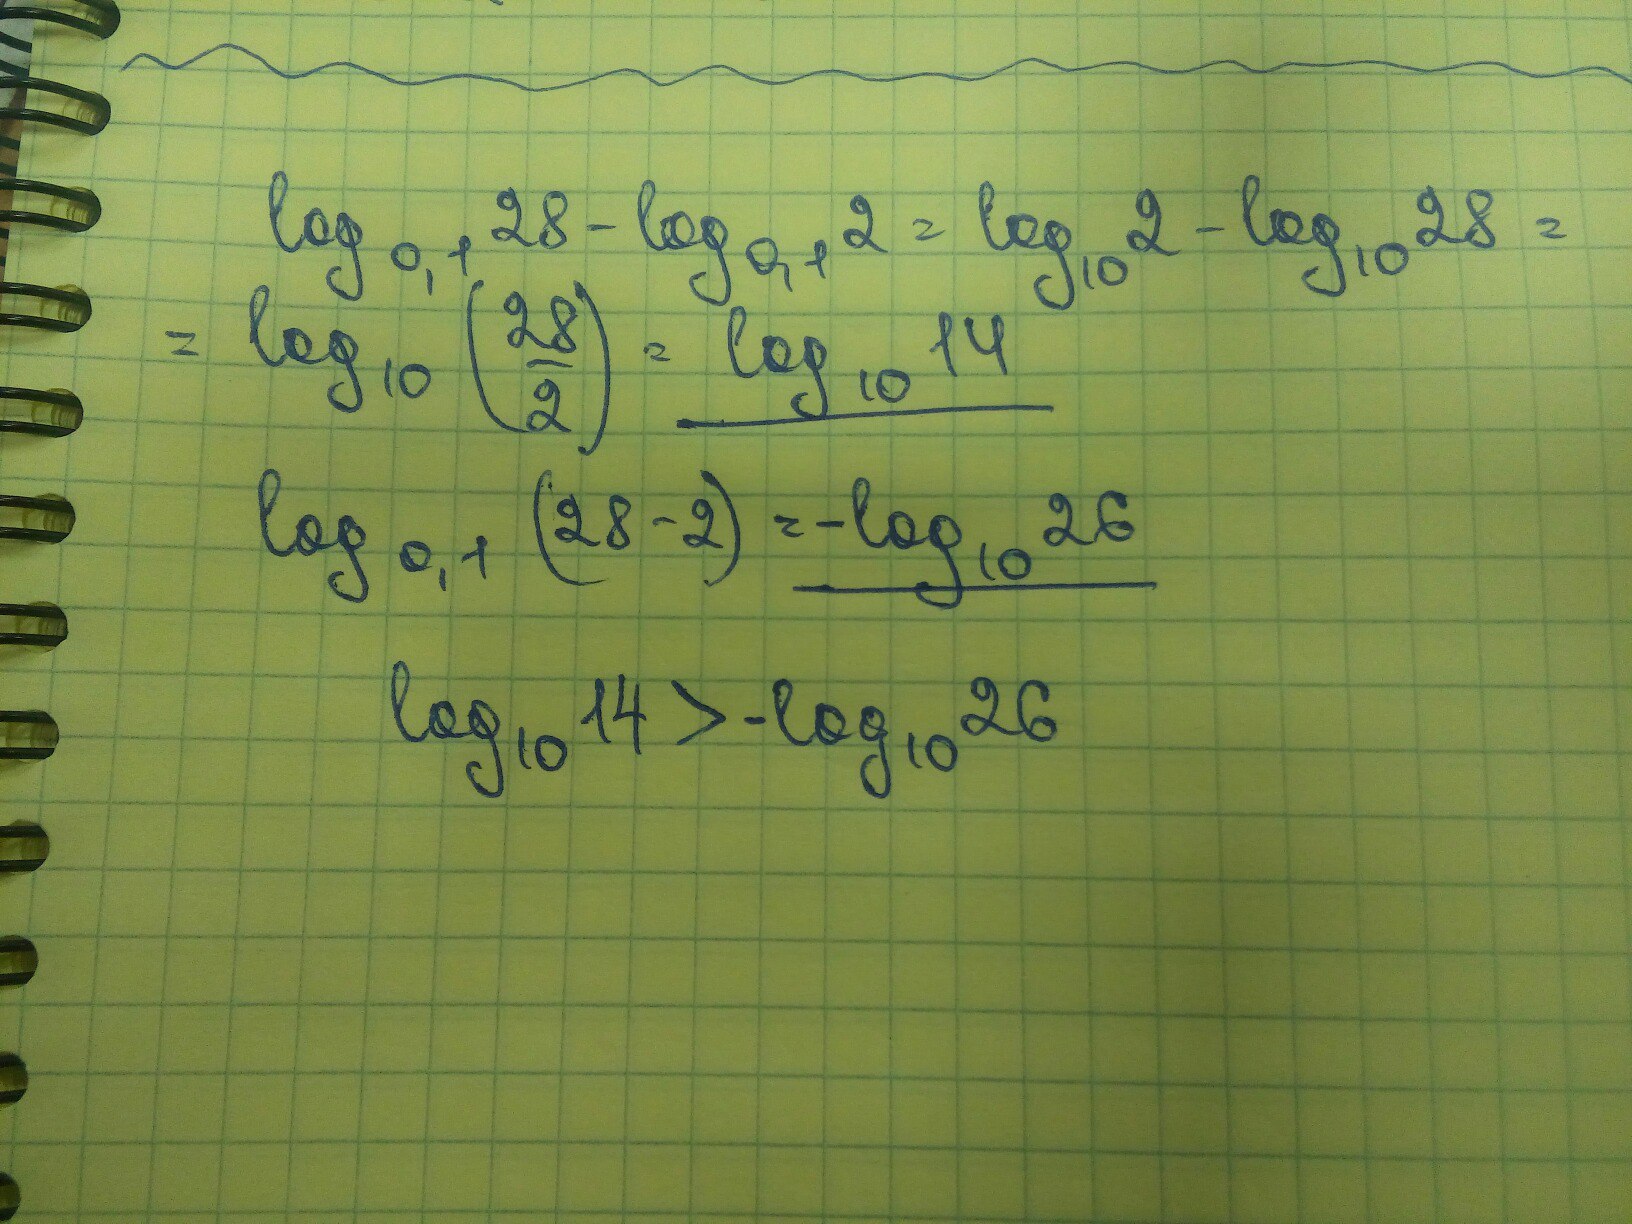 log₀,₁ 28 - log₀,₁ 2 = log₁₀ 2 - log₁₀ 28 =
= log₁₀ (28/2) = log₁₀ 14
log₀,₁ (28 - 2) = -log₁₀ 26
log₁₀ 14 > -log₁₀ 26